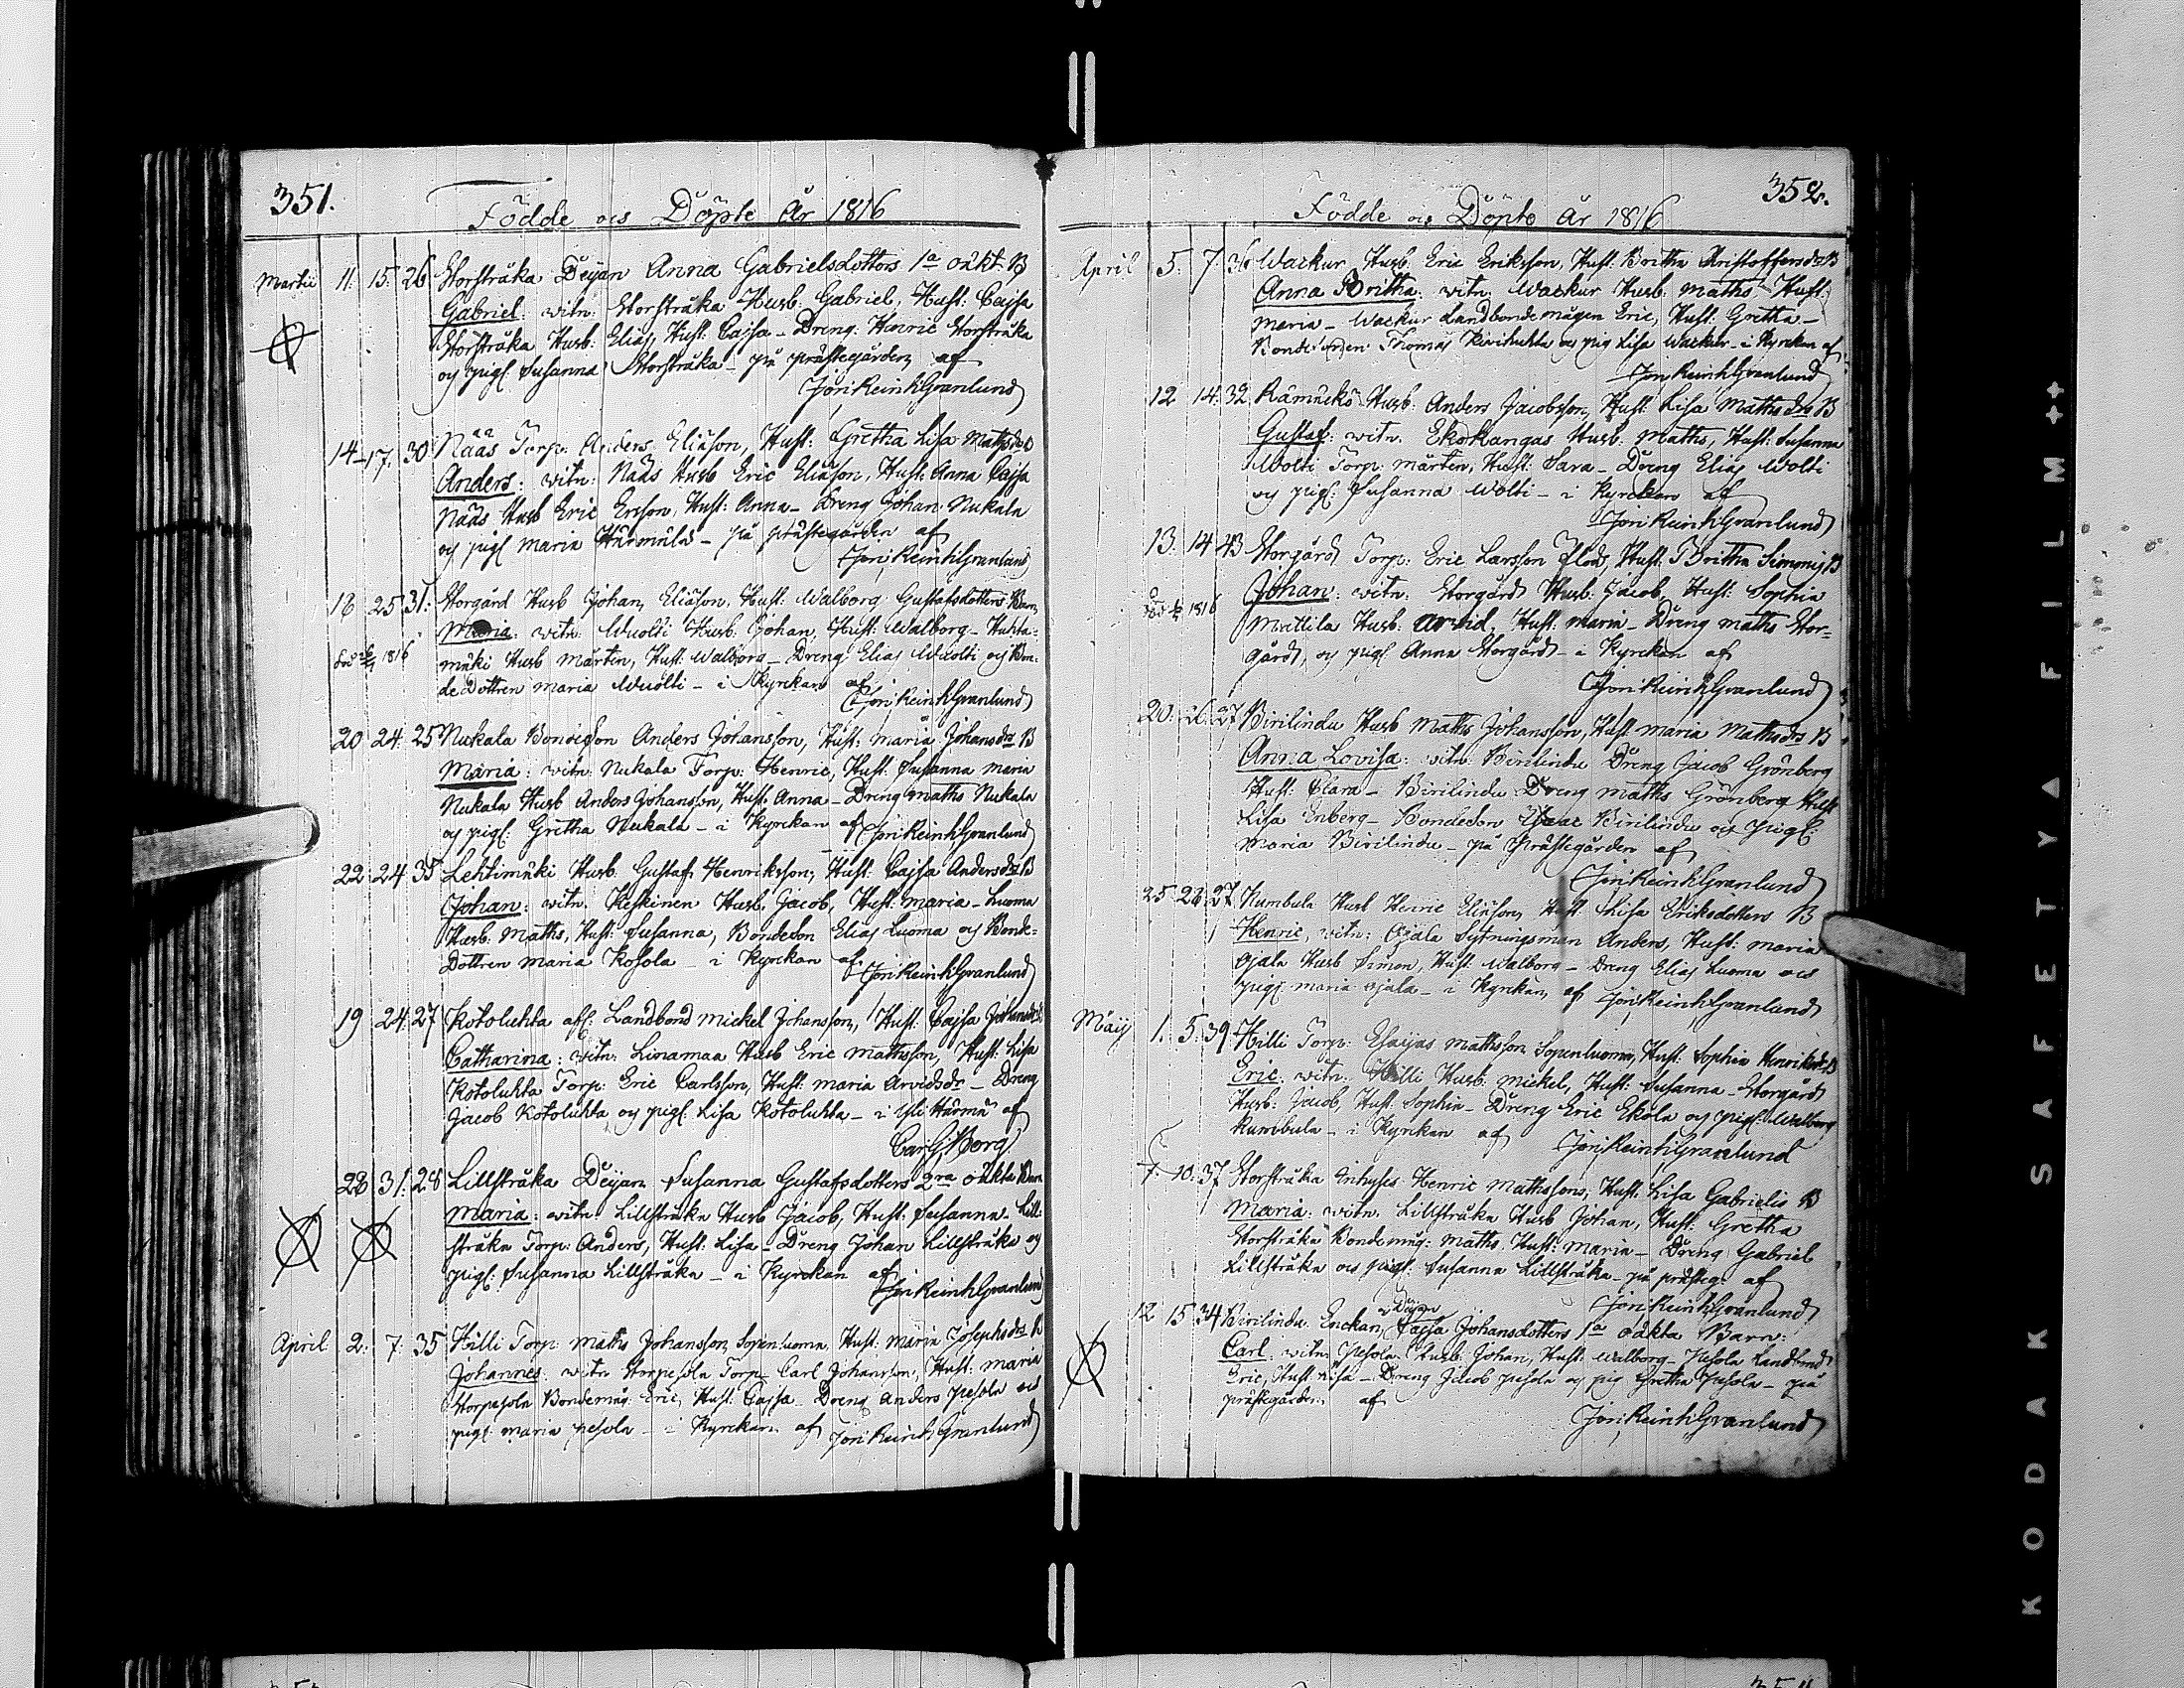 351.
Födde och Döpte År 1816
Martii 11: 15: 26 Storstråka Deijan Anna Gabrielsdotters 1a oäkt. B
Gabriel: witn: Storstråka Husb: Gabriel, Hust: Cajsa
Storstråka Husb: Elias, Hust: Cajsa - Dreng: Henric Storstråka
och pig: Susanna Storstråka - på prästegården af
Jon: Reinh Granlund
14 17: 30 Nääs Torp: Anders Eliäson, Hust: Gretha Lisa Mathsdr
Anders: witn: Nääs Husb Eric Eliäson, Hust: Anna Cajsa
Nääs Husb Eric Ersson, Hust: Anna - Dreng Johan Nukala
och pig: Maria Härmälä - på prästegården af
Jon: Reinh Granlund
16 25 31: Storgård Husb Johan Eliäson, Hust: Walborg Gustafsdotters Barn
Maria: witn: Wuolti Husb: Johan, Hust: Walborg - Huhta-
1816 mäki Husb Mårten, Hust: Walborg - Dreng Elias Wuolti och Bon-
dedottren Maria Wuolti - i Kyrckan af
Jon: Reinh Granlund
20 24: 25 Nukala Bondeson Anders Johansson, Hust: Maria Johansdr B
Maria: witn: Nukala Torp: Henric, Hust: Susanna Maria
Nukala Husb Anders Johansson, Hust: Anna - Dreng Maths Nukala
och pig: Gretha Nukala - i Kyrckan af Jon: Reinh Granlund
22 24 35 Lehtimäki Husb: Gustaf Henriksson, Hust: Cajsa Andersdr B
Johan: witn: Keskinen Husb. Jacob, Hust: Maria - Luoma
Husb. Maths, Hust: Susanna, Bondeson Elias Luoma och Bonde-
dottren Maria Kosola - i Kyrckan af Jon: Reinh Granlund
19 24: 27 Kotoluhta Landbond Mickel Johansson, Hust: Cajsa
Catharina: witn: Linamaa Husb Eric Mathsson, Hust: Lisa
Kotoluhta Torp: Eric Carlsson, Hust: Maria Arvidsdr - Dreng
Jacob Kotoluhta och pig: Lisa Kotoluhta - i Yli Härmä af
Carl G: Berg
28 31: 28 Lillstråka Deijan Susanna Gustafsdotters 2ra oäkta Barn
Maria: witn: Lillstråka Husb Jacob, Hust: Susanna - Lill-
stråka Torp: Anders, Hust: Lisa - Dreng Johan Lillstråka och
pig: Susanna Lillstråka - i Kyrckan af
Jon: Reinh Granlund
April 2: 7: 35 Hilli Torp: Maths Johansson Sopenluoma, Hust: Maria Josephsdr B
Johannes: witn: Storpesola Torp: Carl Johansson, Hust: Maria
Storpesola Bondemåg: Eric, Hust: Cajsa - Dreng Anders Pesola och
pig: Maria Pesola - i Kyrckan af Jon: Reinh Granlund
352.
Födde och Döpte År 1816
April 5: 7: 36 Wackur Husb: Eric Eriksson, Hust: Britha Christoffersdr B
Anna Britha: witn: Wackur Husb: Maths, Hust:
Maria - Wackur Landbondemågen Eric, Hust: Gretha -
Thomas och pig Lisa Wackur - i Kyrckan af
Jon: Reinh Granlund
12 14: 32 Rämäckö Husb: Anders Jacobsson, Hust: Lisa Mathsdrs B
Gustaf: witn: Ekokangas Husb: Maths, Hust: Susanna
Wolti Torp: Mårten, Hust: Sara - Dreng Elias Wolti
och pig: Susanna Wolti - i Kyrckan af
Jon: Reinh Granlund
13: 14 43 Storgård Torp: Eric Larsson Flod, Hust: Britha Simonis B
Johan: witn: Storgård Husb: Jacob, Hust: Sophia
1816 Mattila Husb: Arvid, Hust: Maria - Dreng Maths Stor-
gård, och pig: Anna Storgård - i Kyrckan af
Jon: Reinh Granlund
20: 21: 27 Birilindu Husb Maths Johansson, Hust: Maria Mathsdrs B
Anna Lovisa: witn: Birilindu Dreng Jacob Grönberg
Hust: Clara - Birilindu Dreng Maths Grönberg Hust
Lisa Enberg - Bondeson Isaac Birilindu och pig:
Maria Birilindu - på Prästegården af
Jon: Reinh Granlund
25 28 27 Kumbula Husb Henric Eliäson, Hust: Lisa Eriksdotters B
Henric, witn: Ojala Sytningsman Anders, Hust: Maria
Ojala Husb Simon, Hust: Walborg - Dreng Elias Luoma och
pig: Maria Ojala - i Kyrckan af Jon: Reinh Granlund
Maij 1. 5: 39 Hilli Torp: Esaijas Mathsson Sopenluoma, Hust: Sophia Henriksdr B
Eric: witn: Hilli Husb: Mickel, Hust: Susanna - Storgård
Husb: Jacob, Hust: Sophia - Dreng Eric Ekola och pig: Walborg
Kumbula - i Kyrckan af Jon: Reinh Granlund
7: 10: 37 Storstråka Inhyses Henric Mathssons, Hust: Lisa Gabrielis B
Maria: witn: Lillstråka Husb Johan, Hust: Gretha
Storstråka Bondemåg: Maths, Hust: Maria - Dreng Gabriel
Lillstråka och pig: Susanna Lillstråka - på prästeg: af
Jon: Reinh Granlund
12 15 34 Birilindu Enckan, Deijan Cajsa Johansdotters 1a oäkta Barn:
Carl: witn: Pesola Husb: Johan, Hust: Walborg - Pesola Landbond
Eric, Hust: Lisa - Dreng Jacob Pesola och pig Gretha Pesola - på
prästegården af
Jon: Reinh Granlund
KODAK SAFETY FILM